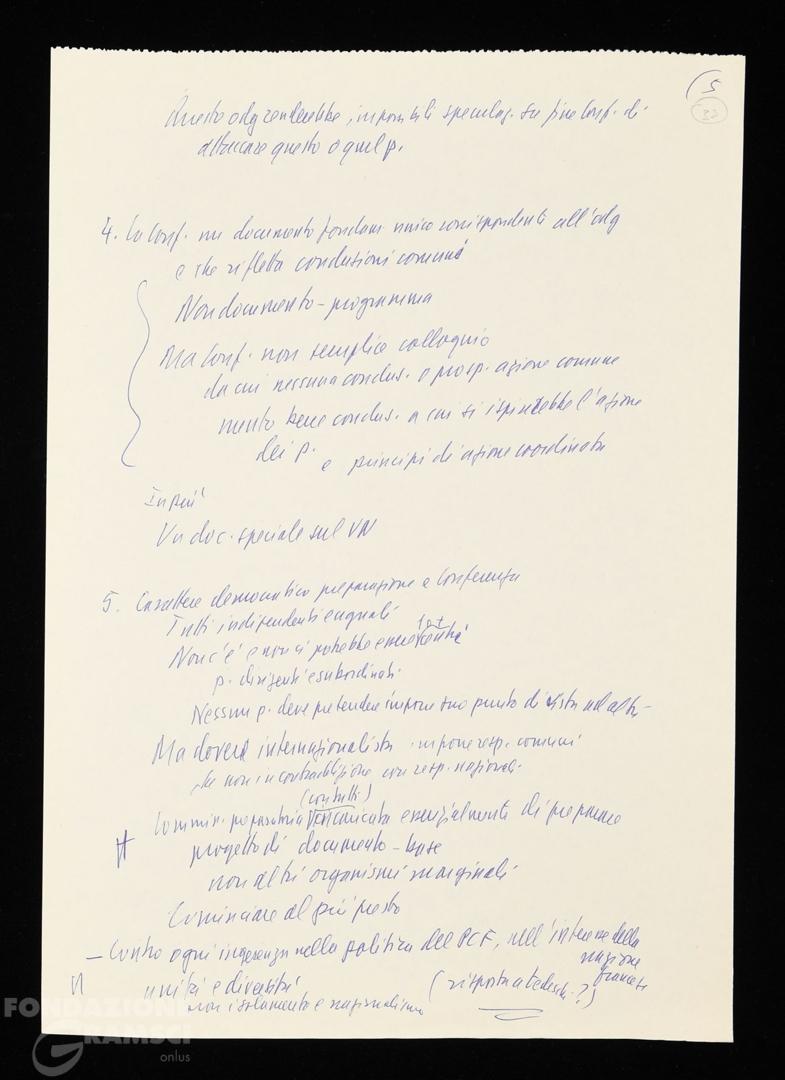 5
33
Questo odg renderebbe impossibili speculaz. su fine Conf. di
attaccare questo o quel p.
4. La Conf. un documento fondam. unico corrispondente all'odg
e che rifletta conclusioni comuni
Non documento-programma
Ma Conf. non semplice colloquio
da cui nessuna conclus. o prosp. azione comune
bene conclus. a cui si ispirerebbe l'azione
dei p. e principi di azione coordinata
In più
Un doc. speciale sul VN
5. Carattere democratico preparazione e Conferenza
Tutti indipendenti e uguali
Non c'è e non ci potrebbe essere
p. dirigenti e subordinati
Nessun p. deve pretendere imporre suo punto di vista ad altri
Ma dovere internazionalista impone resp. comuni
non in contraddizione con resp. nazionali
(con tutti)
Commiss. preparatoria incaricata essenzialmente di preparare
progetto di documento-base
non altri organismi marginali
Cominciare al più presto
- Contro ogni ingerenza nella politica del PCF, nell'interesse della
nazione
francese
unità e diversità
(risposta a tedeschi?)
non isolamento e nazionalismo
FONDAZIONE
GRAMSCI
onlus